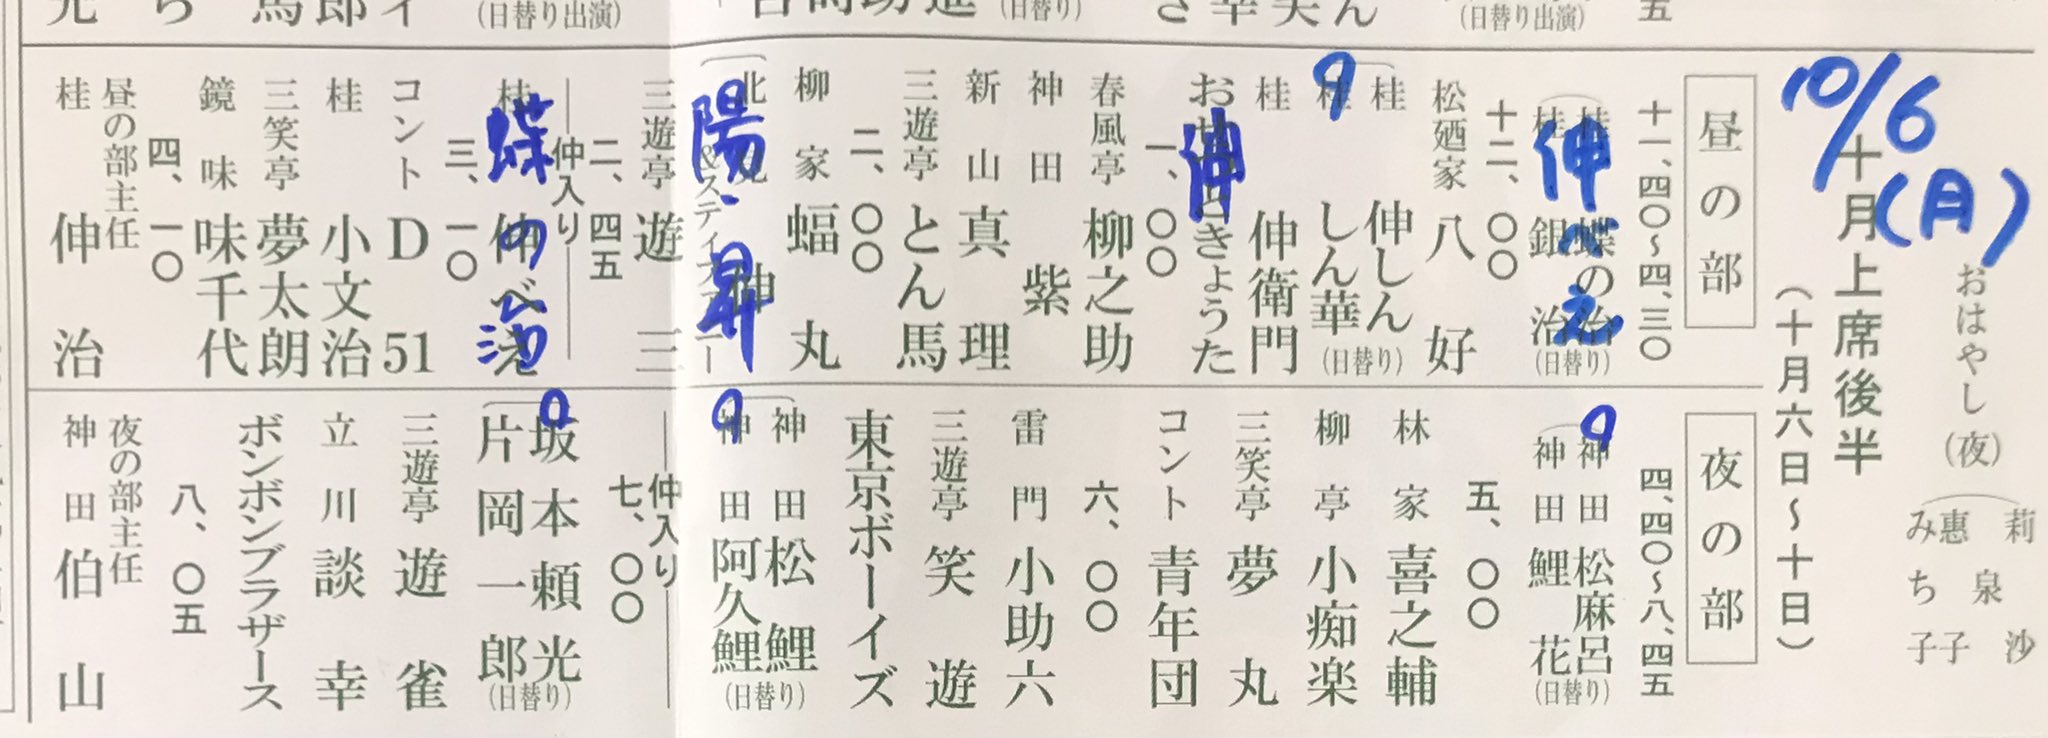 10/6(月)
おはやし(夜)
莉沙
惠泉子
みち子
十月上席後半
(十月六日〜十日)
昼の部
十一、四〇〜四、三〇
桂 蝶の治
桂 銀治
(日替り)
伸べえ
十二、〇〇
松廼家 八好
桂 伸しん
桂 しん華
(日替り)
9
桂 伸衛門
おせつときょうた
伸
一、〇〇
春風亭 柳之助
神田 紫
新山 真理
三遊亭 とん馬
二、〇〇
柳家 蝠丸
北見 伸
&スティファニー
陽・昇
三遊亭 遊三
二、四五
仲入り
桂 伸べえ
蝶の治
三、一〇
コントD51
桂 小文治
三笑亭 夢太朗
鏡味 味千代
四、一〇
昼の部主任
桂 伸治
夜の部
四、四〇〜八、四五
神田 松麻呂
神田 鯉花
(日替り)
9
五、〇〇
林家 喜之輔
柳亭 小痴楽
三笑亭 夢丸
コント青年団
六、〇〇
雷門 小助六
三遊亭 笑遊
東京ボーイズ
神田 松鯉
神田 阿久鯉
(日替り)
9
仲入り
七、〇〇
坂本頼光
片岡一郎
(日替り)
三遊亭 遊雀
立川談幸
ボンボンブラザース
八、〇五
夜の部主任
神田 伯山
(日替り出演)
(日替り)
(日替り出演)